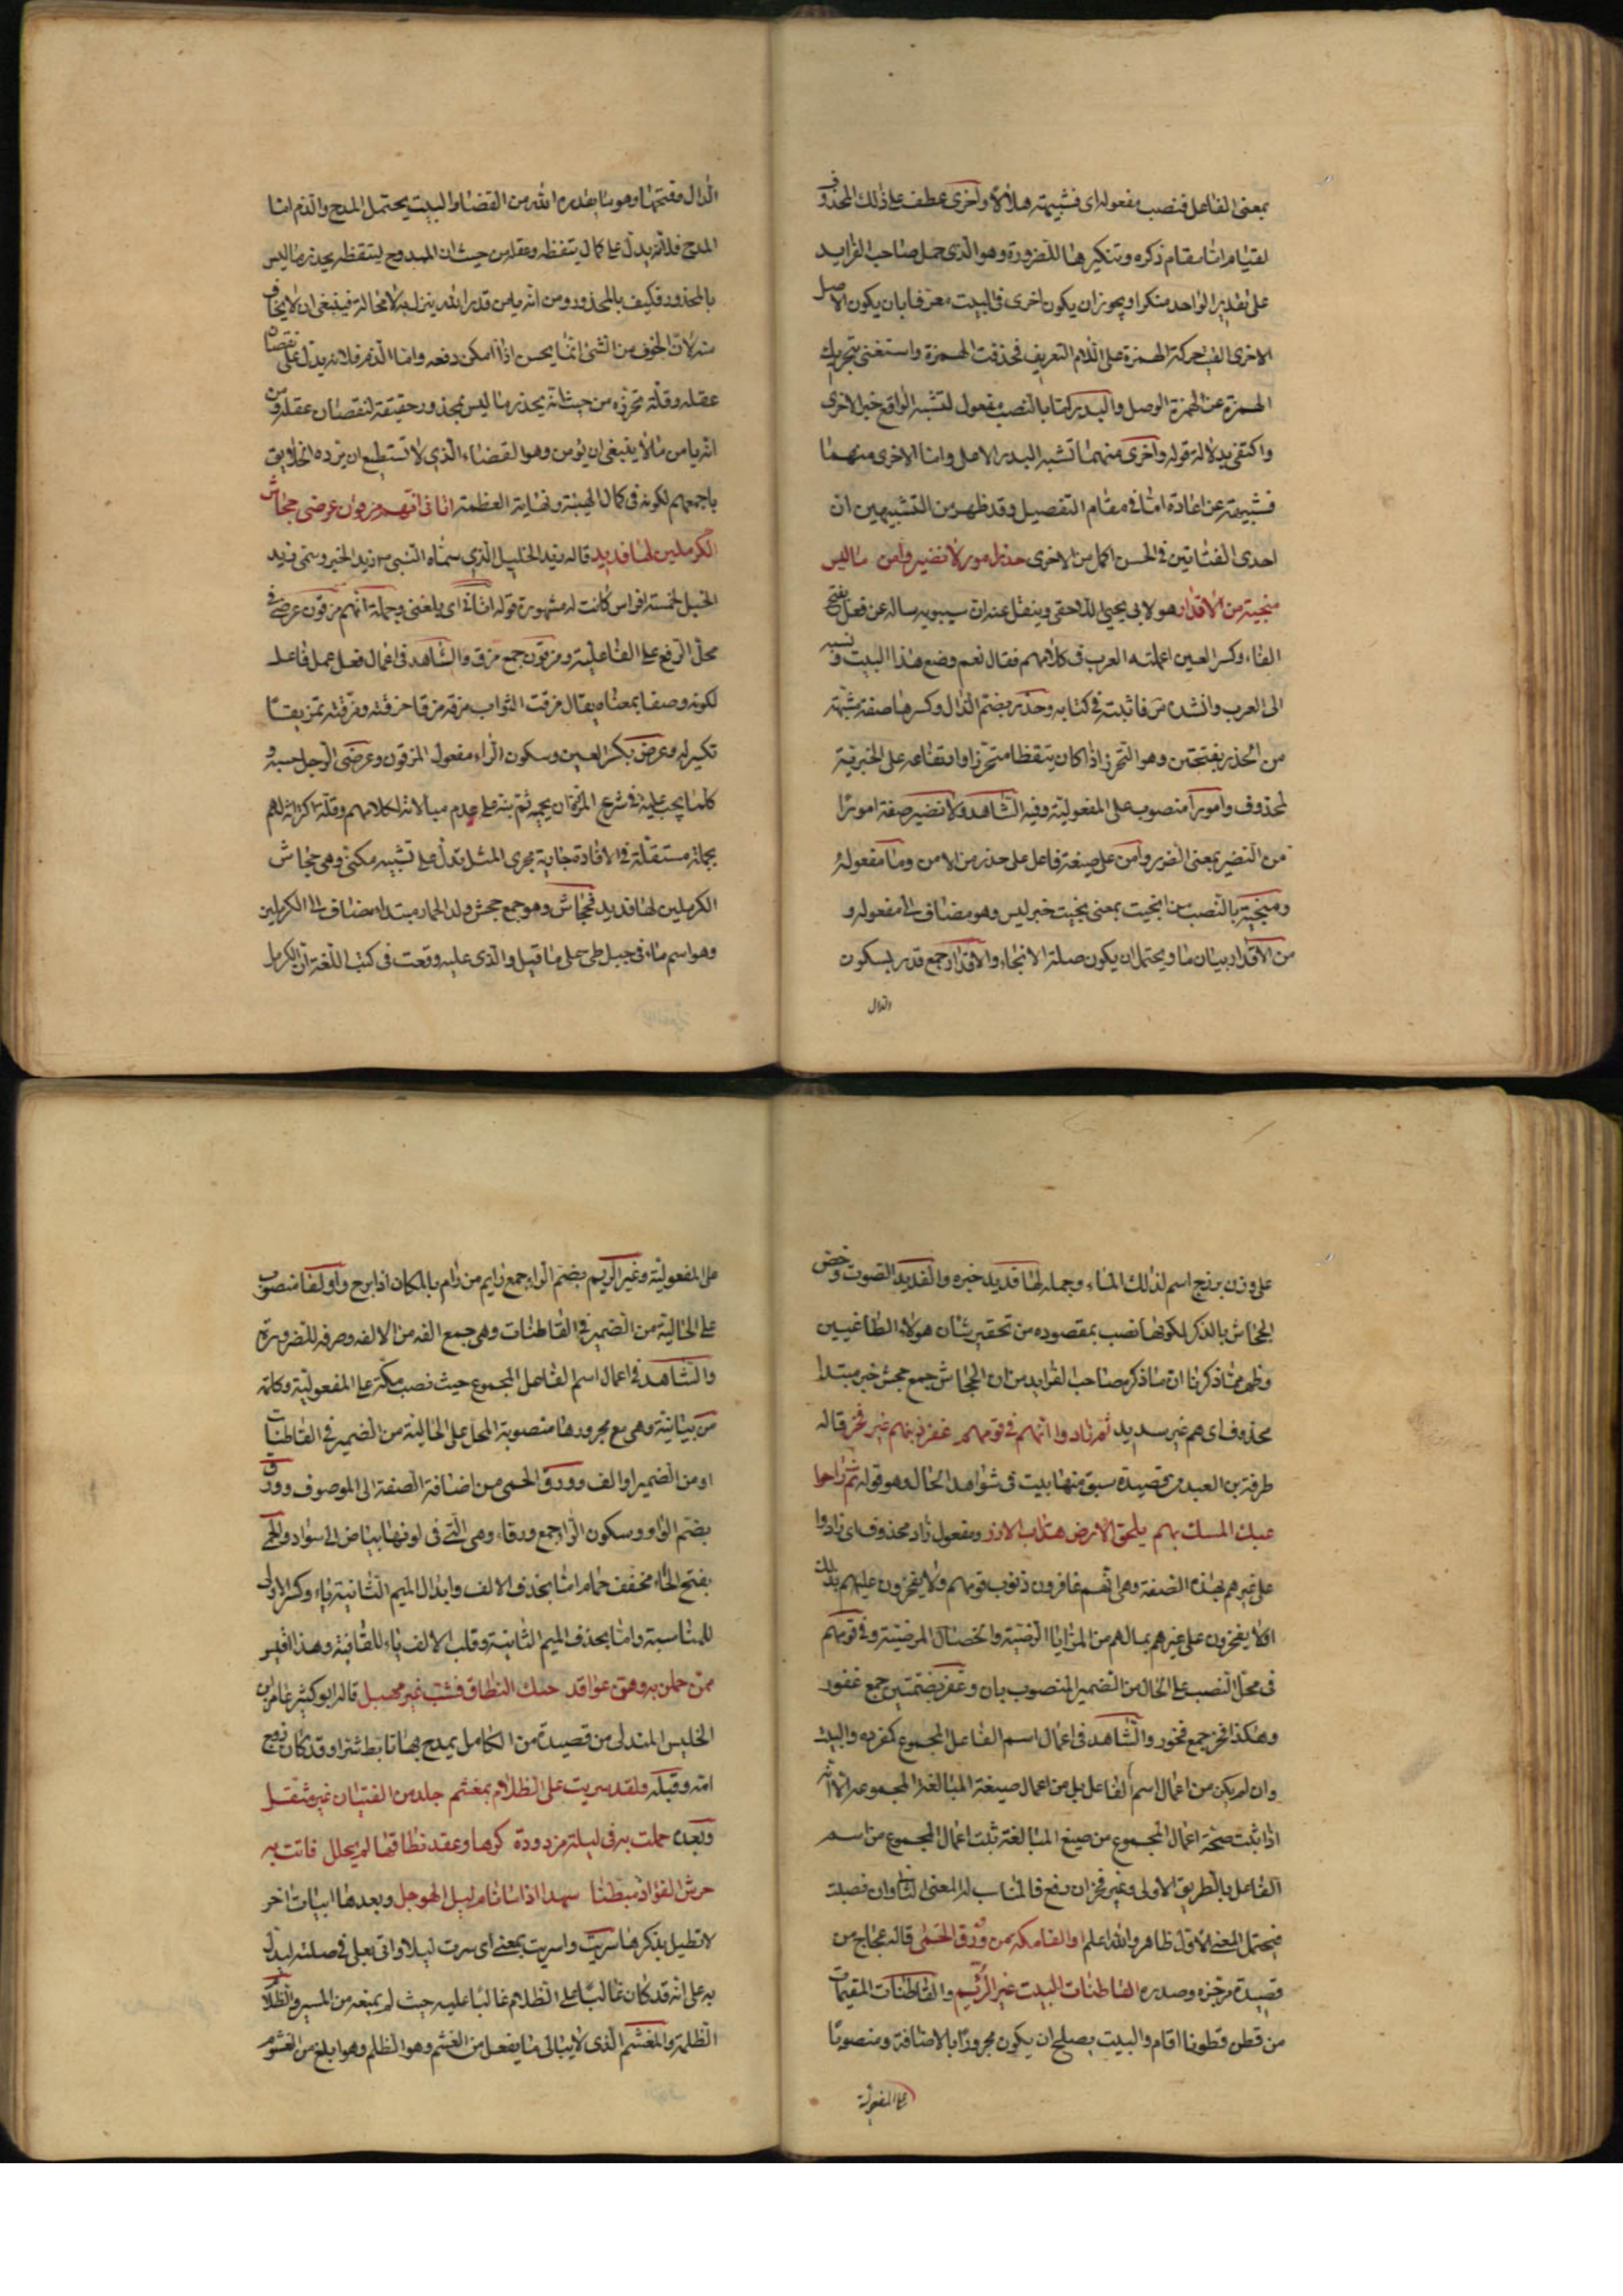 بمعنى الفاعل فنصب مفعوله اى فشبيهته هلالا واخرى عطف على ذلك المحذوف
لقيام اما مقام ذكره وتنكيرها للضرورة وهو الذى حمل صاحب الفرايد
على تقدير الواحد منكرا ويجوز ان يكون اخرى فى البيت معرفا بان يكون الاصل
الاخرى الف حركة الهمزة على اللام التعريف فحذفت الهمزة واستغنى بتحريك
الهمزة عن الهمزة الوصل والبدر كما بالنصب مفعول لتشبه الواقع خبر الاخرى
واكتفى بدلالة قوله واخرى منهما تشبه البدر الاصل واما الاخرى منهما
فشبيهته عن اعادة اما فى مقام التفصيل وقد ظهر من التشبيهين ان
احدى الفتاتين فى الحسن اكمل من الاخرى حذر امورا لا تضير وامن ما ليس
منجية من الاقدار هو لابى يحيى اللاحقى وينقل عنه ان سيبويه ساله عن فعل بفتح
الفاء وكسر العين اعملته العرب فى كلامهم فقال نعم وضع هذا البيت ونسبه
الى العرب وانشده فاثبته فى كتابه وحذر بضم الذال وكسرها صفة مشبهة
من الحذر بفتحتين وهو التحرز اذا كان يتقظا متحرزا وارتفاعه على الخبرية
لمحذوف وامورا منصوب على المفعولية وفيه الشاهد ولا تضير صفة امورا
من الضير بمعنى الضرر وآمن على صيغة فاعل على حذر من الامن وما مفعوله
ومنجية بالنصب من انجيت بمعنى نجيت خبر ليس وهو مضاف الى مفعوله و
من الاقدار بيان ما ويحتمل ان يكون صلة الانجاء والاقدار جمع قدر بسكون
الدال
الدال وفتحها وهو ما يقدره الله من القضاء والبيت يحتمل المدح والذم اما
المدح فلانه يدل على كمال يتقظه وعقله من حيث ان الممدوح ليتقظه يحذر ما ليس
بالمحذور فكيف بالمحذور ومن انه يامن قدر الله ينزل به لا محالة فينبغى ان لا يخاف
منه لان الخوف من الشئ انما يحسن اذا امكن دفعه واما الذم فلانه يدل على نقصان
عقله وقلة تحرزه من حيث انه يحذر ما ليس بمحذور حقيقة لنقصان عقله ومن
انه يامن ما لا ينبغى ان يؤمن وهو القضاء الذى لا تستطيع ان يرده الخلايق
باجمعهم لكونه فى كمال الهيبة ونهاية العظمة اتانى انهم مزقون عرضى جحاش
الكرملين لها فديد قاله زيد الخليل الذى سماه النبى ص زيد الخير وسمى زيد
الخيل لخمسة افراس كانت له مشهورة قوله اتانى اى بلغنى وجملة انهم مزقون عرضى فى
محل الرفع على الفاعلية ومزقون جمع مزق والشاهد فى اعمال فعل عمل فاعله
لكونه وصفا بمعناه يقال مزقت الثواب مزقه مزقا خرقته ومزقته تمزيقا
تكيرله وعرض بكسر العين وسكون الراء مفعول المزقون وعرضى الرجل حسبه و
كلما يجب عليه فى شرع المروان يحميه ثم بنه على عدم مبالاته لكلامهم وقلة اكتراثه لهم
بجملة مستقلة فى الافادة جاية مجرى المثل تدل على تشبيه مكنى وهى جحاش
الكرملين لها فديد فجحاش وهو جمع جحش ولد الحمار مبتداء مضاف الى الكرملين
وهو اسم ماء فى جبل طى على ما قيل والذى عليه وقعت فى كتب اللغة ان الكرمل
على وزن برنج اسم لذلك الماء وجملة لها فديد خبره والفديد الصوت وخص
الجحاش بالذكر لكونها نصب بمقصوده من تحقير شان هولاء الطاغيين
وظهر مما ذكرنا ان ما ذكره صاحب الفرايد من ان الجحاش جمع جحش خبر مبتدا
محذوف اى هم غير سديد ثم زادوا انهم فى قومهم غفر ذنبهم غير فخر قاله
طرفة بن العبد من قصيدة سبق منها بيت فى شواهد الحال وهو قوله ثم راحوا
عبك المسك بهم يلحق الارض هداب الازر ومفعول زاد محذوف اى زادوا
على غيرهم بهذه الصفة وهى انهم غافرون ذنوب قومهم ولا يفخرون عليهم بذلك
او لا يفخرون على غيرهم بمالهم من المزايا الرضية والخصال المرضية وفى قومهم
فى محل النصب على الحال من الضمير المنصوب بان وغفر بضمتين جمع غفور
وهكذا فخر جمع فخور والشاهد فى اعمال اسم الفاعل المجموع كمفرده والبيت
وان لم يكن من اعمال اسم الفاعل بل من اعمال صيغة المبالغة المجموعة الا انه
اذا ثبت صحة اعمال المجموع من صيغ المبالغة ثبت اعمال المجموع من اسم
الفاعل بالطريق الاولى وغير فخر ان رفع فالمناسب له المعنى الثانى وان نصبت
فيحتمل المعنى الاول ظاهر والله اعلم اوالفا مكة من ورق الحمى قاله عجاج من
قصيدة مرتجزة وصدره القاطنات البيت غير الريم والقاطنات المقيمات
من قطن قطونا اقام والبيت يصلح ان يكون مجرورا بالاضافة ومنصوبا
على المفعولية
على المفعولية وغير الريم بضم الراء جمع رايم من رام بالمكان اذا برح واوالفا منصوب
على الحالية من الضمير فى القاطنات وهى جمع الفه من الالفه وصرفه للضرورة
والشاهد فى اعمال اسم الفاعل المجموع حيث نصب مكة على المفعولية وكلمة
من بيانية وهى مع مجرورها منصوبة المحل على الحالية من الضمير فى القاطنات
او من الضمير اوالف وورق الحمى من اضافة الصفة الى الموصوف وورق
بضم الواو وسكون الراء جمع ورقاء وهى التى فى لونها بياض الى سواد والحمى
بفتح الحاء مخفف حمام اما بحذف الالف وابدال الميم الثانية ياء وكسر الاولى
للمناسبة واما بحذف الميم الثانية وقلب الالف ياء للقافية وهذا اقيس
ممن حملن به وهن عواقد حبك النطاق فشب غير مهبل قاله ابو كبير عامر بن
الخليس الهندلى من قصيدة من الكامل يمدح بها تابط شرا وقد كان زوج
امه وقبله ولقد سريت على الظلام بمغشم جلد من الفتيان غير مثقل
وبعده حملت به فى ليلة مزدودة كرها وعقد نطاقها لم يحلل فاتت به
حوش الفواد مبطنا سهدا اذا ما نام ليل الهوجل وبعدها ابيات اخر
لا نطيل بذكرها سريت واسريت بمعنى اى سرت ليلا واتى بعلى فى صلته ليدل
به على انه قد كان غالبا على الظلام غالبا عليه حيث لم يمنعه من المسير والظلام
الظلمة والمغشم الذى لا يبالى ما يفعل من الغشم وهو الظلم وهو ابلغ من الغشوم